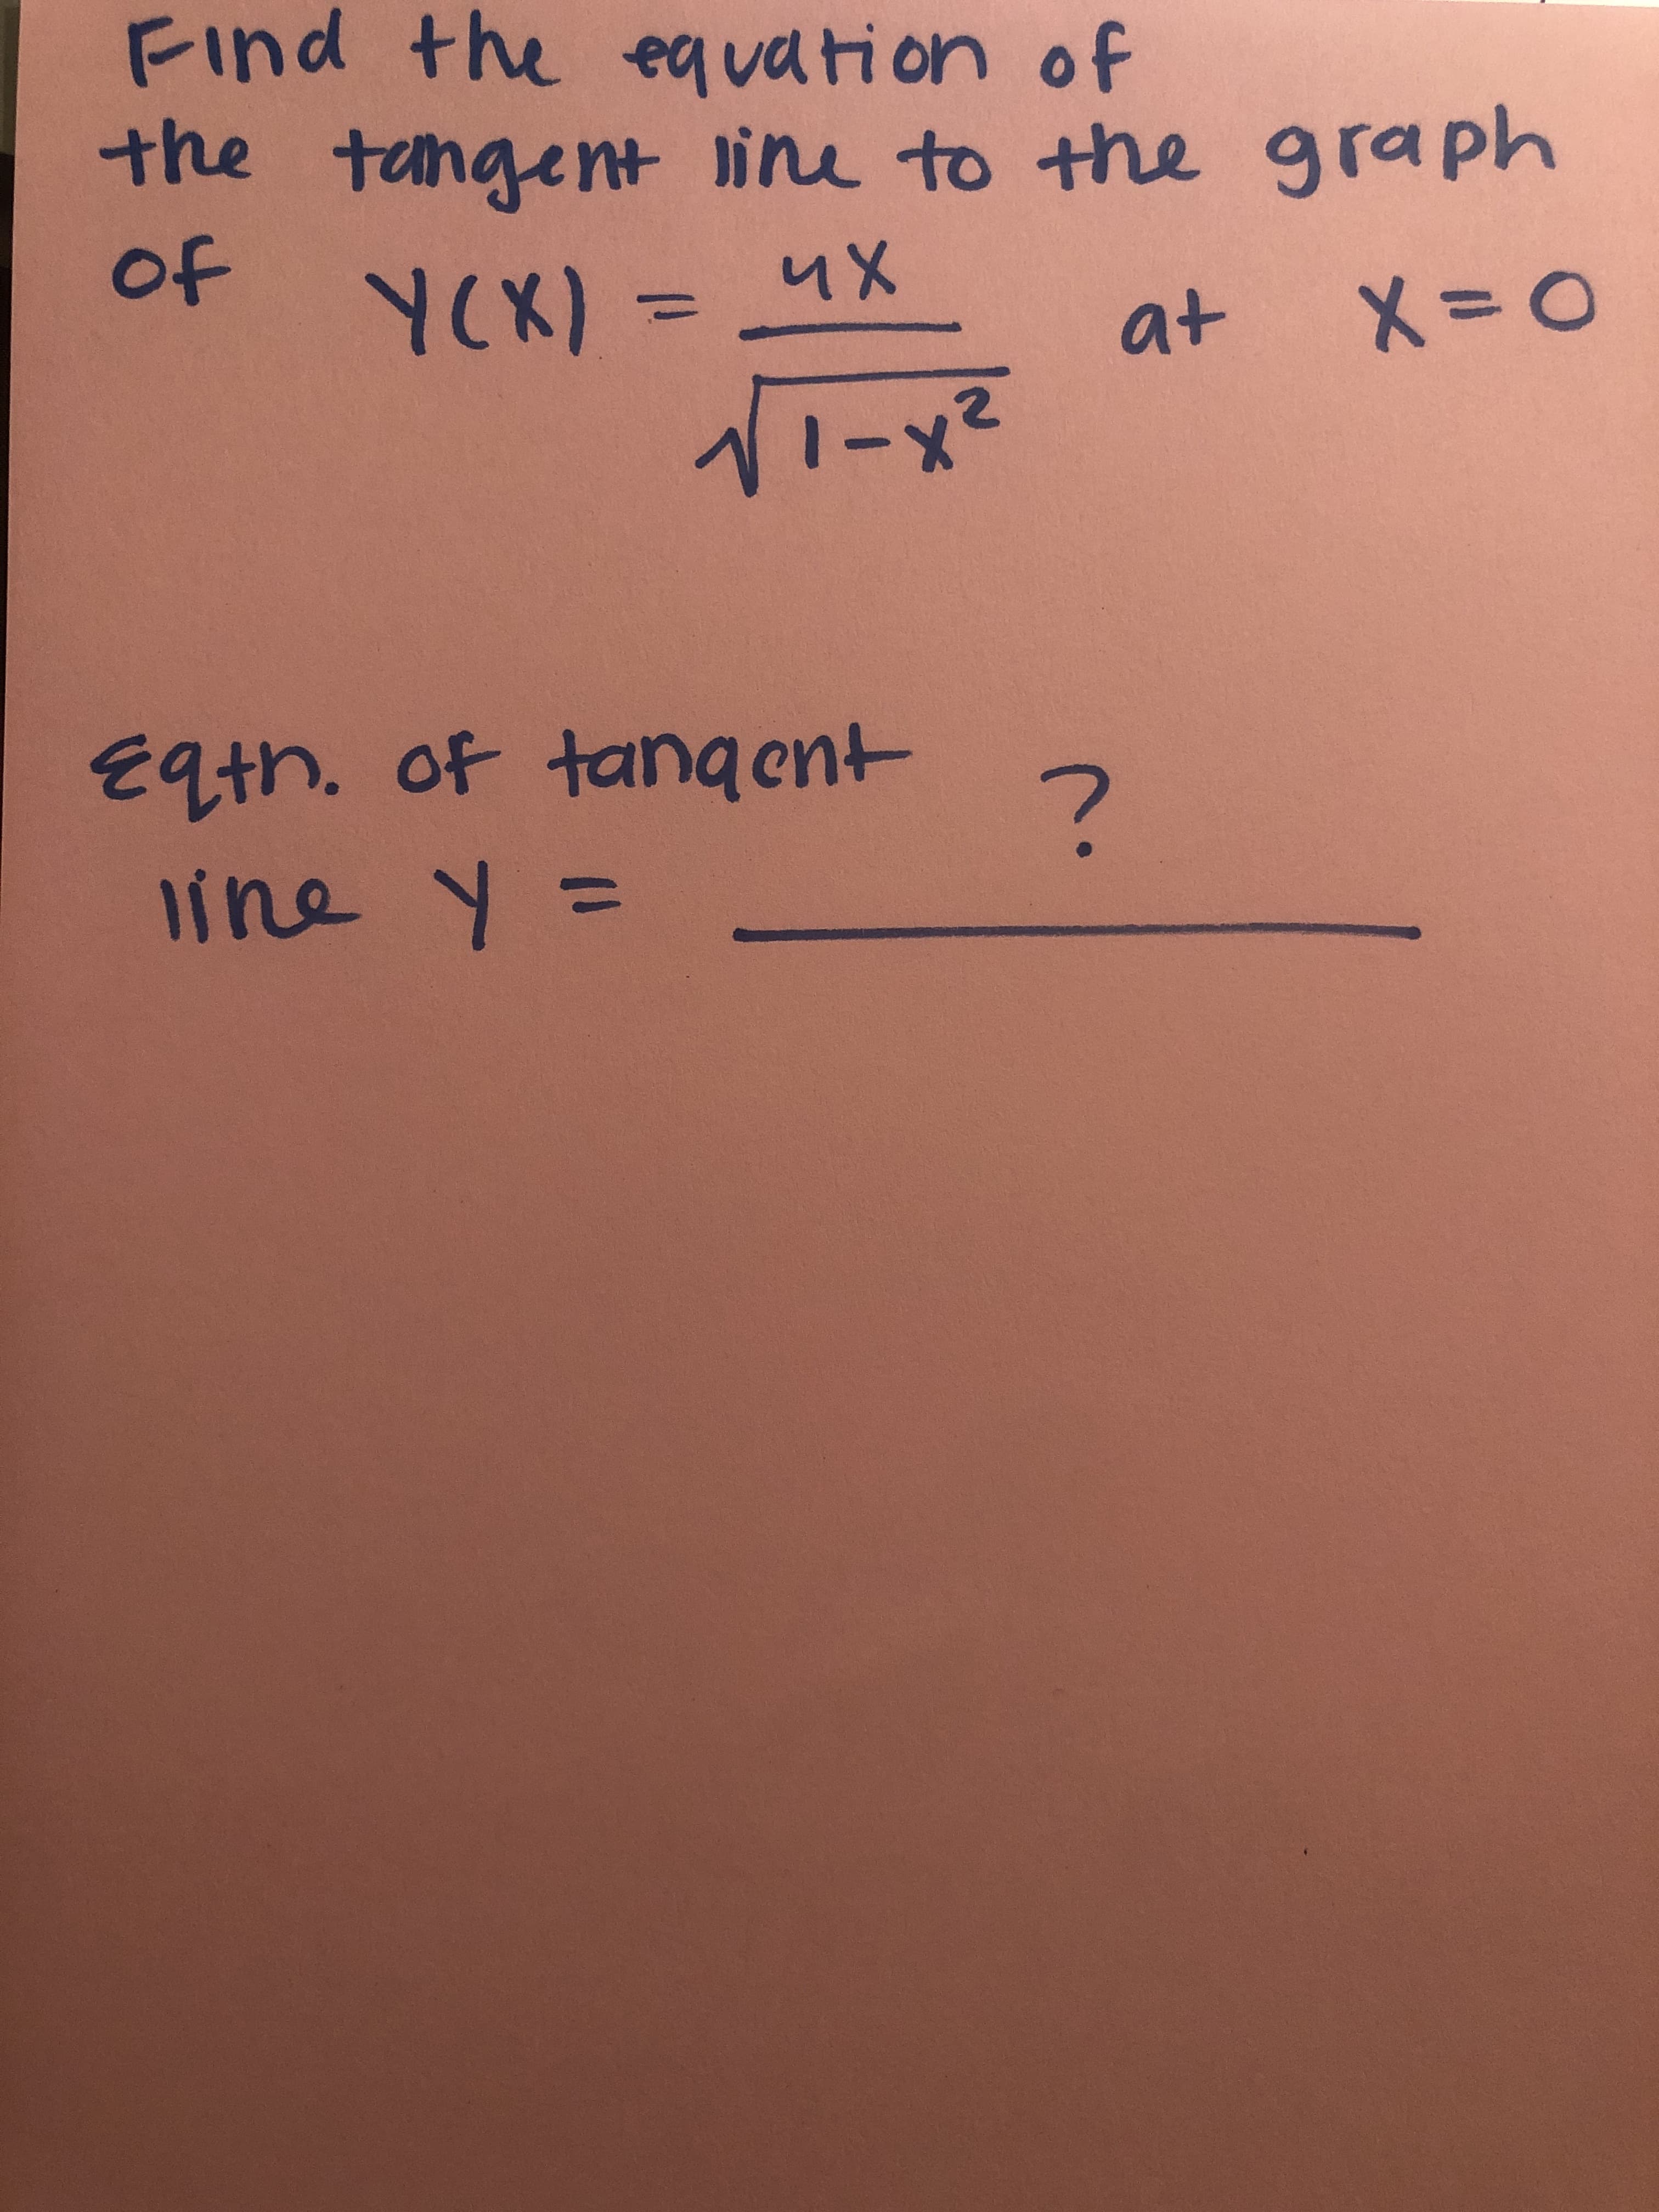 Find the equation of
the tangent line to the graph
of Y(X) = 4X / √1-x² at X=0
Eqtn. of tangent ?
line Y = ________